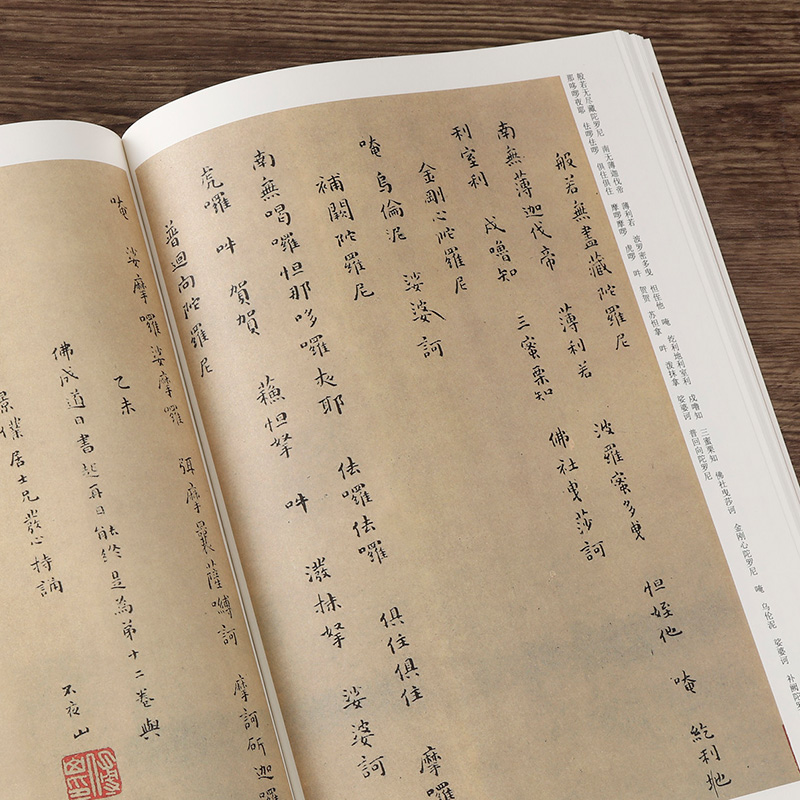 般若无尽藏陀罗尼 南无薄迦伐帝 薄利若 波罗密多曳 怛侄他 唵 纥利地利室利 戍噜知 三蜜栗知 佛社曳莎诃 金刚心陀罗尼 唵 乌伦泥 娑婆诃 补阙陀罗
那哆啰夜耶 佉啰佉啰 俱住俱住 摩啰摩啰 虎啰 吽 贺贺 苏怛拿 吽 泼抹拿 娑婆诃 普回向陀罗尼
般若無盡藏陀羅尼
南無薄迦伐帝 薄利若 波羅蜜多曳 怛姪他 唵 紇利地
利室利 戍嚕知 三蜜栗知 佛社曳莎訶
金剛心陀羅尼
唵烏倫泥 娑婆訶
補闕陀羅尼
南無喝囉怛那哆囉夜耶 佉囉佉囉 俱住俱住 摩囉
虎囉 吽 賀賀 蘇怛拏 吽 潑抹拏 娑婆訶
普迴向陀羅尼
唵 娑摩囉娑摩囉 弭摩曩薩嚩訶 摩訶斫迦囉
乙未
佛成道日書起再日能終是為第十二卷與
居士兄發心持誦
不夜山